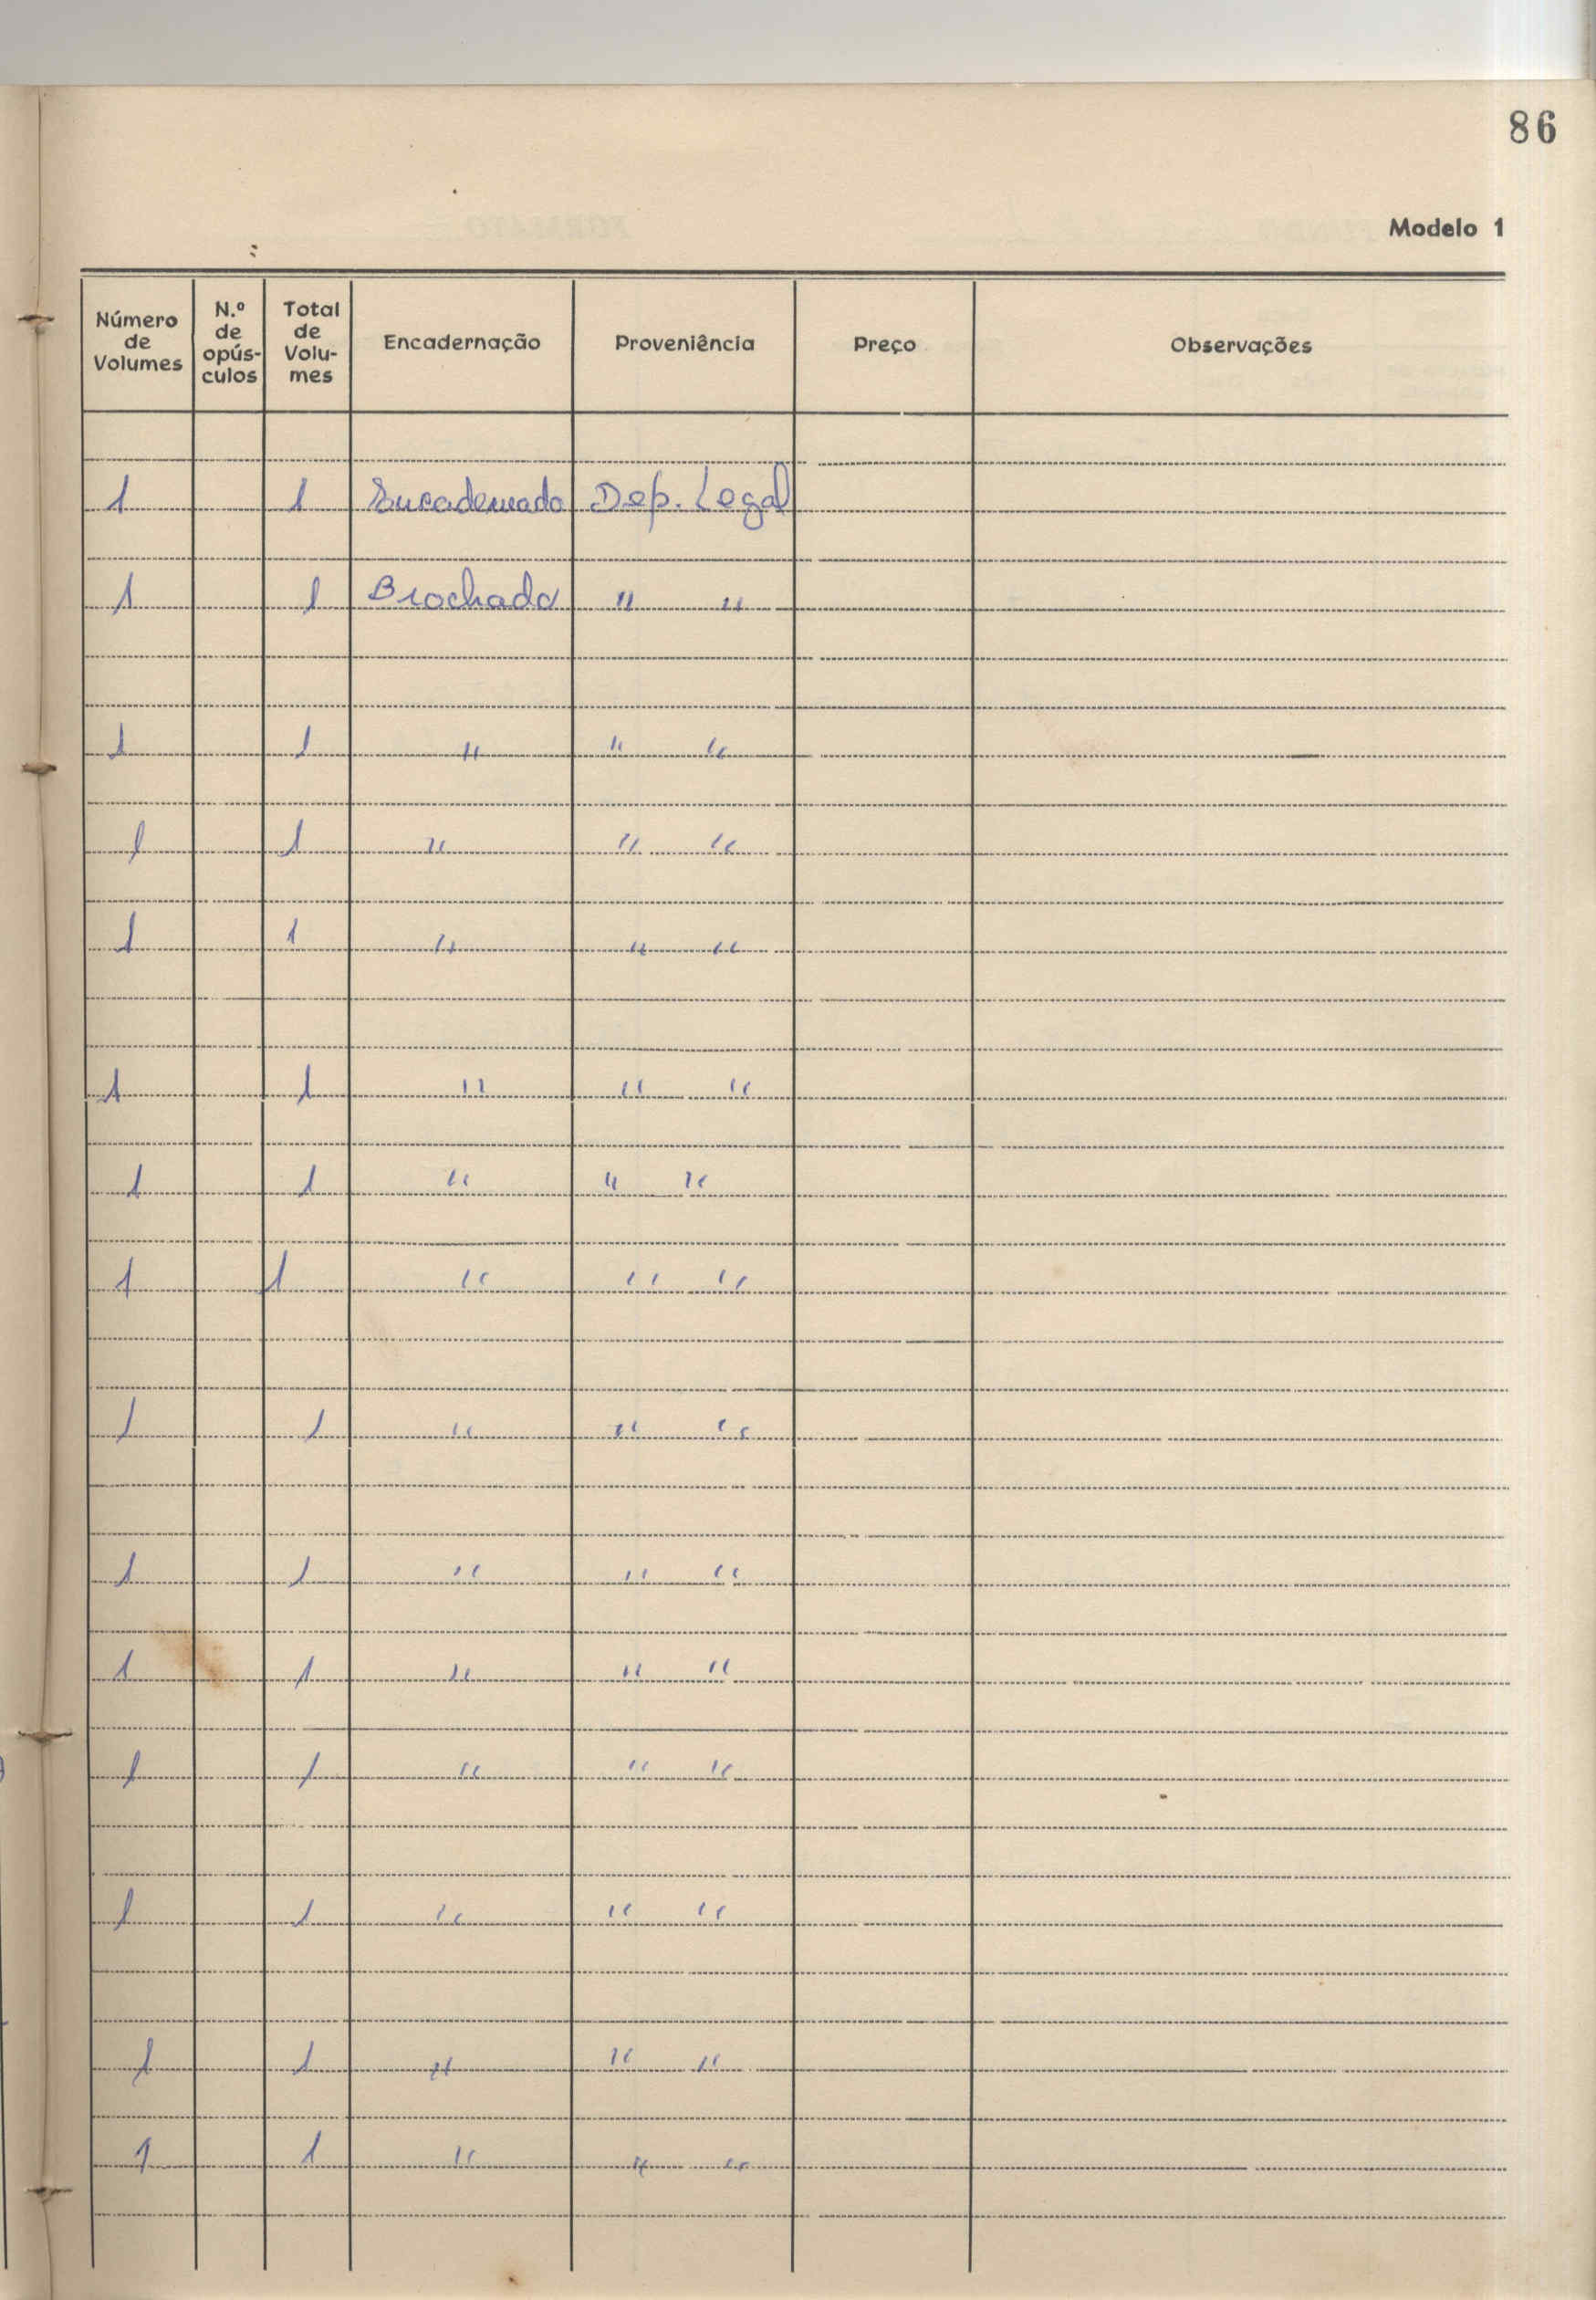 86
Modelo 1
Número de Volumes | N.º de opús-culos | Total de Volu-mes | Encadernação | Proveniência | Preço | Observações
1 1 Encadernado Dep. Legal
1 1 Brochado " "
1 1 " " "
1 1 " " "
1 1 " " "
1 1 " " "
1 1 " " "
1 1 " " "
1 1 " " "
1 1 " " "
1 1 " " "
1 1 " " "
1 1 " " "
1 1 " " "
1 1 " " "